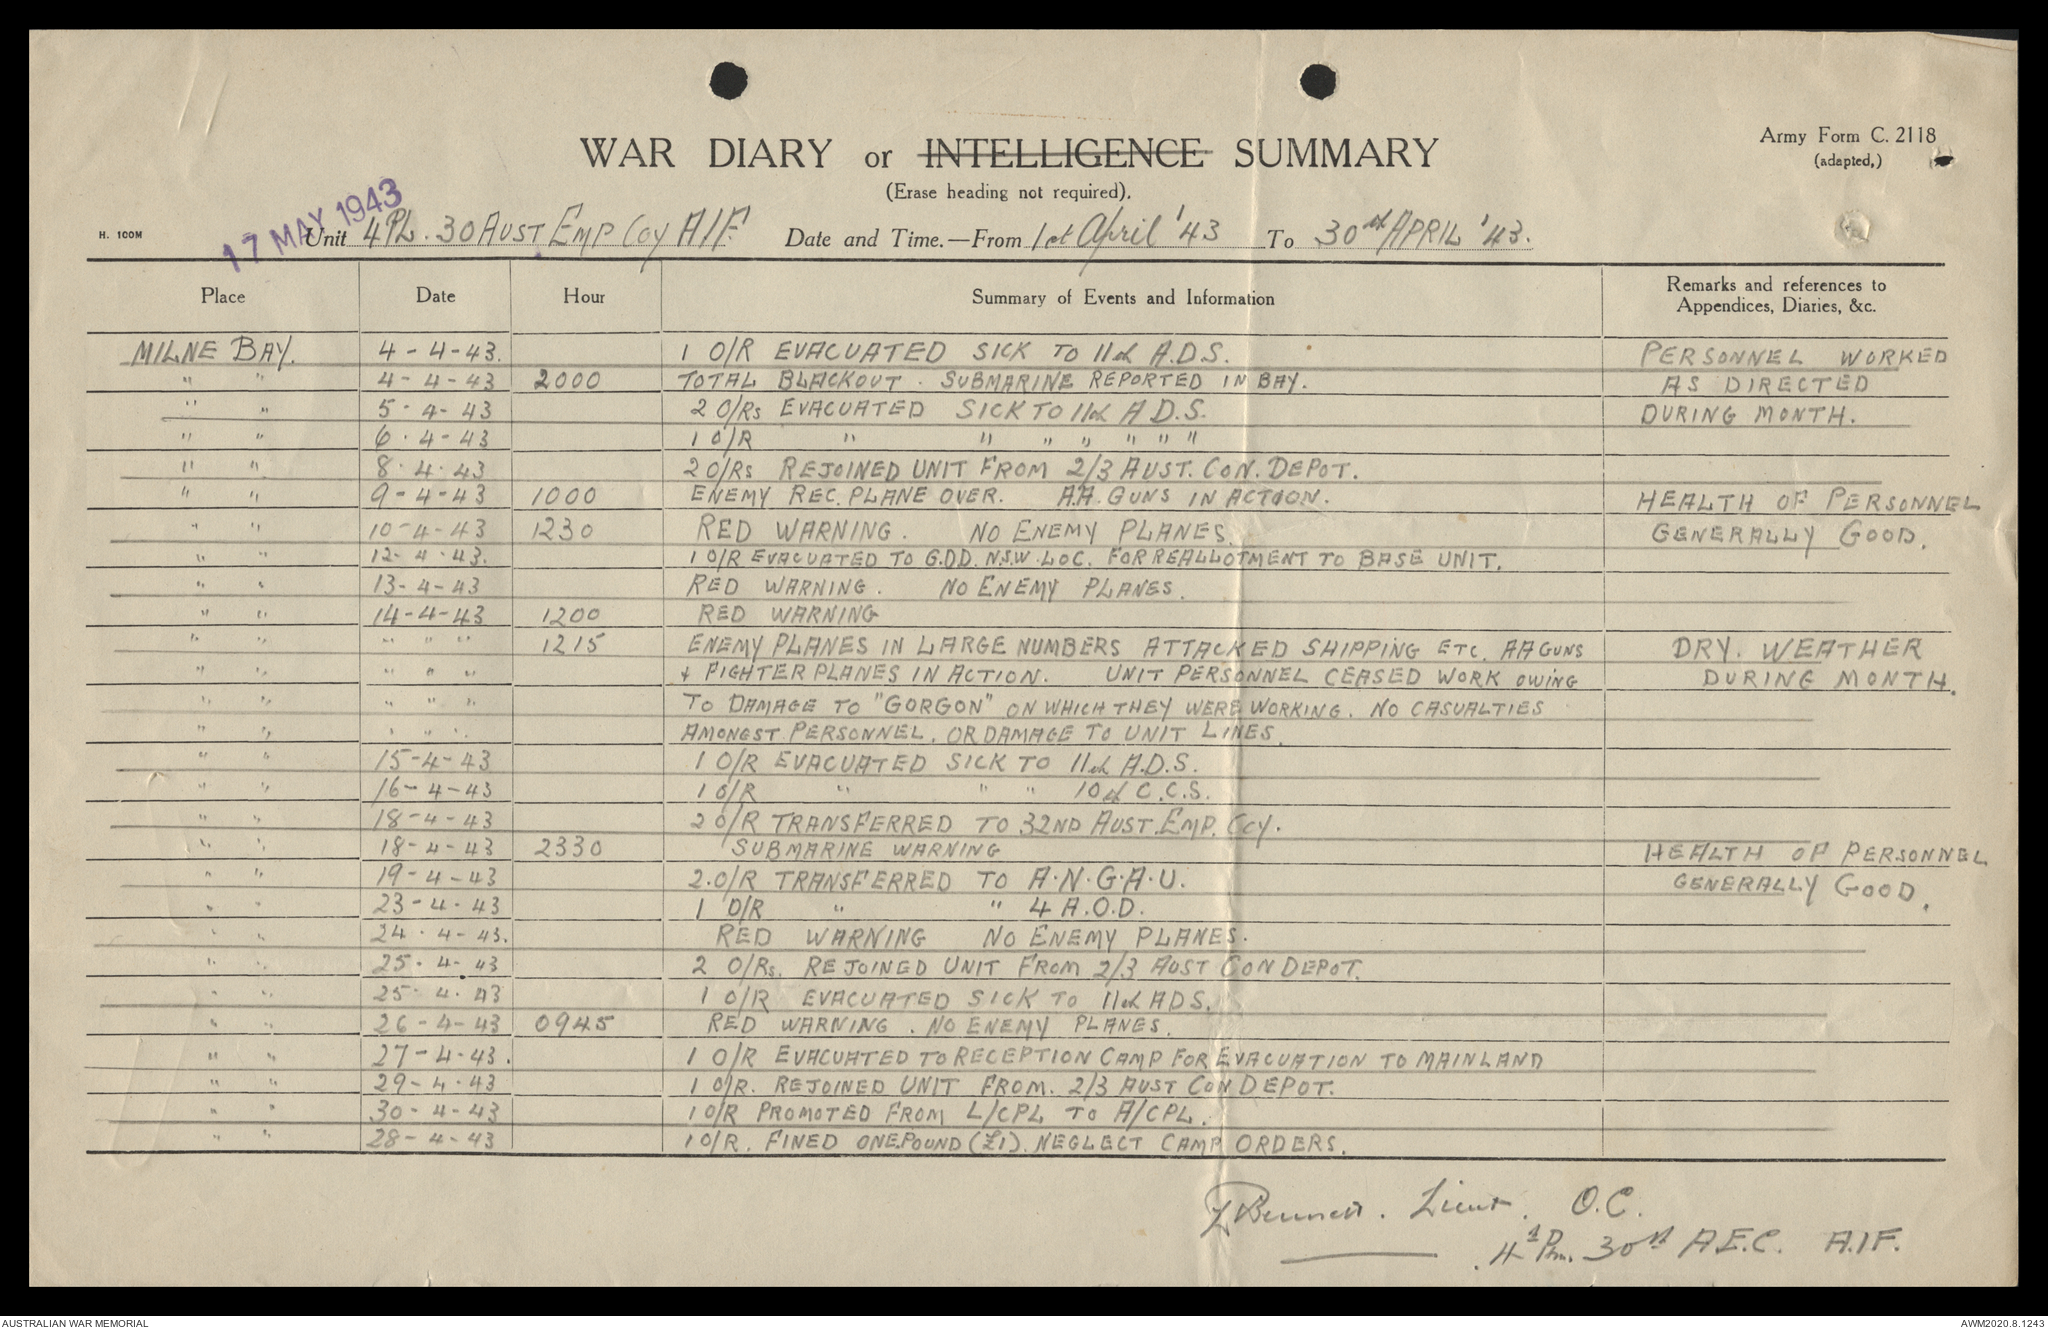 Army Form C. 2118
(adapted,)
WAR DIARY or INTELLIGENCE SUMMARY
(Erase heading not required).
17 MAY 1943
H. 100M
Unit 4 PL. 30 AUST. EMP COY AIF. Date and Time.—From 1st April '43 To 30th APRIL '43.
Place Date Hour Summary of Events and Information Remarks and references to Appendices, Diaries, &c.
MILNE BAY. 4-4-43. 1 O/R EVACUATED SICK TO 11th A.D.S. PERSONNEL WORKED
" " 4-4-43 2000 TOTAL BLACKOUT. SUBMARINE REPORTED IN BAY. AS DIRECTED
" " 5-4-43 2 O/Rs EVACUATED SICK TO 11th A.D.S. DURING MONTH.
" " 6-4-43 1 O/R " " " " " " "
" " 8-4-43 2 O/Rs REJOINED UNIT FROM 2/3 AUST. CON. DEPOT.
" " 9-4-43 1000 ENEMY REC. PLANE OVER. A.A. GUNS IN ACTION. HEALTH OF PERSONNEL
" " 10-4-43 1230 RED WARNING. NO ENEMY PLANES. GENERALLY GOOD.
" " 12-4-43. 1 O/R EVACUATED TO G.D.D. N.S.W. L OF C. FOR REALLOTMENT TO BASE UNIT.
" " 13-4-43 RED WARNING. NO ENEMY PLANES.
" " 14-4-43 1200 RED WARNING
" " " " " 1215 ENEMY PLANES IN LARGE NUMBERS ATTACKED SHIPPING ETC. AA GUNS DRY. WEATHER
" " " " " + FIGHTER PLANES IN ACTION. UNIT PERSONNEL CEASED WORK OWING DURING MONTH.
" " " " " TO DAMAGE TO "GORGON" ON WHICH THEY WERE WORKING. NO CASUALTIES
" " " " " AMONGST PERSONNEL, OR DAMAGE TO UNIT LINES.
" " 15-4-43 1 O/R EVACUATED SICK TO 11th A.D.S.
" " 16-4-43 1 O/R " " " 10th C.C.S.
" " 18-4-43 2 O/R TRANSFERRED TO 32ND AUST. EMP. COY.
" " 18-4-43 2330 SUBMARINE WARNING HEALTH OF PERSONNEL
" " 19-4-43 2.O/R TRANSFERRED TO A.N.G.A.U. GENERALLY GOOD.
" " 23-4-43 1 O/R " " 4 A.O.D.
" " 24-4-43. RED WARNING NO ENEMY PLANES.
" " 25-4-43 2 O/Rs. REJOINED UNIT FROM 2/3 AUST CON DEPOT.
" " 25-4-43 1 O/R EVACUATED SICK TO 11th ADS.
" " 26-4-43 0945 RED WARNING. NO ENEMY PLANES.
" " 27-4-43. 1 O/R EVACUATED TO RECEPTION CAMP FOR EVACUATION TO MAINLAND
" " 29-4-43 1 O/R. REJOINED UNIT FROM. 2/3 AUST CON DEPOT.
" " 30-4-43 1 O/R PROMOTED FROM L/CPL TO A/CPL.
" " 28-4-43 1 O/R. FINED ONE POUND (£1). NEGLECT CAMP ORDERS.
Bennett. Lieut. O.C.
4 Pn. 30th A.E.C. A.I.F.
AUSTRALIAN WAR MEMORIAL AWM2020.8.1243